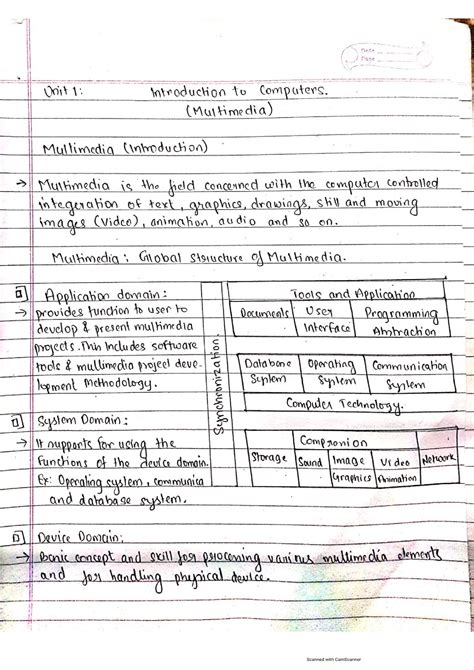 Date
Page
Unit 1: Introduction to Computers.
(Multimedia)
Multimedia (Introduction)
→ Multimedia is the field concerned with the computer controlled
integeration of text, graphics, drawings, still and moving
images (Video), animation, audio and so on.
Multimedia: Global Structure of Multimedia.
Application domain:
→ provides function to user to
develop & present multimedia
projects. This includes software
tools & multimedia project deve-
lopment Methodology.
System Domain:
→ It supports for using the
functions of the device domain.
Ex: Operating system, communica
and database system.
Synchronization.
Tools and Application
Documents User Interface Programming Abstraction
Database System Operating System Communication System
Computer Technology.
Companion
Storage Sound Image Graphics Video Animation Network
Device Domain:
→ Basic concept and skill for processing various multimedia elements
and for handling physical device.
Scanned with CamScanner